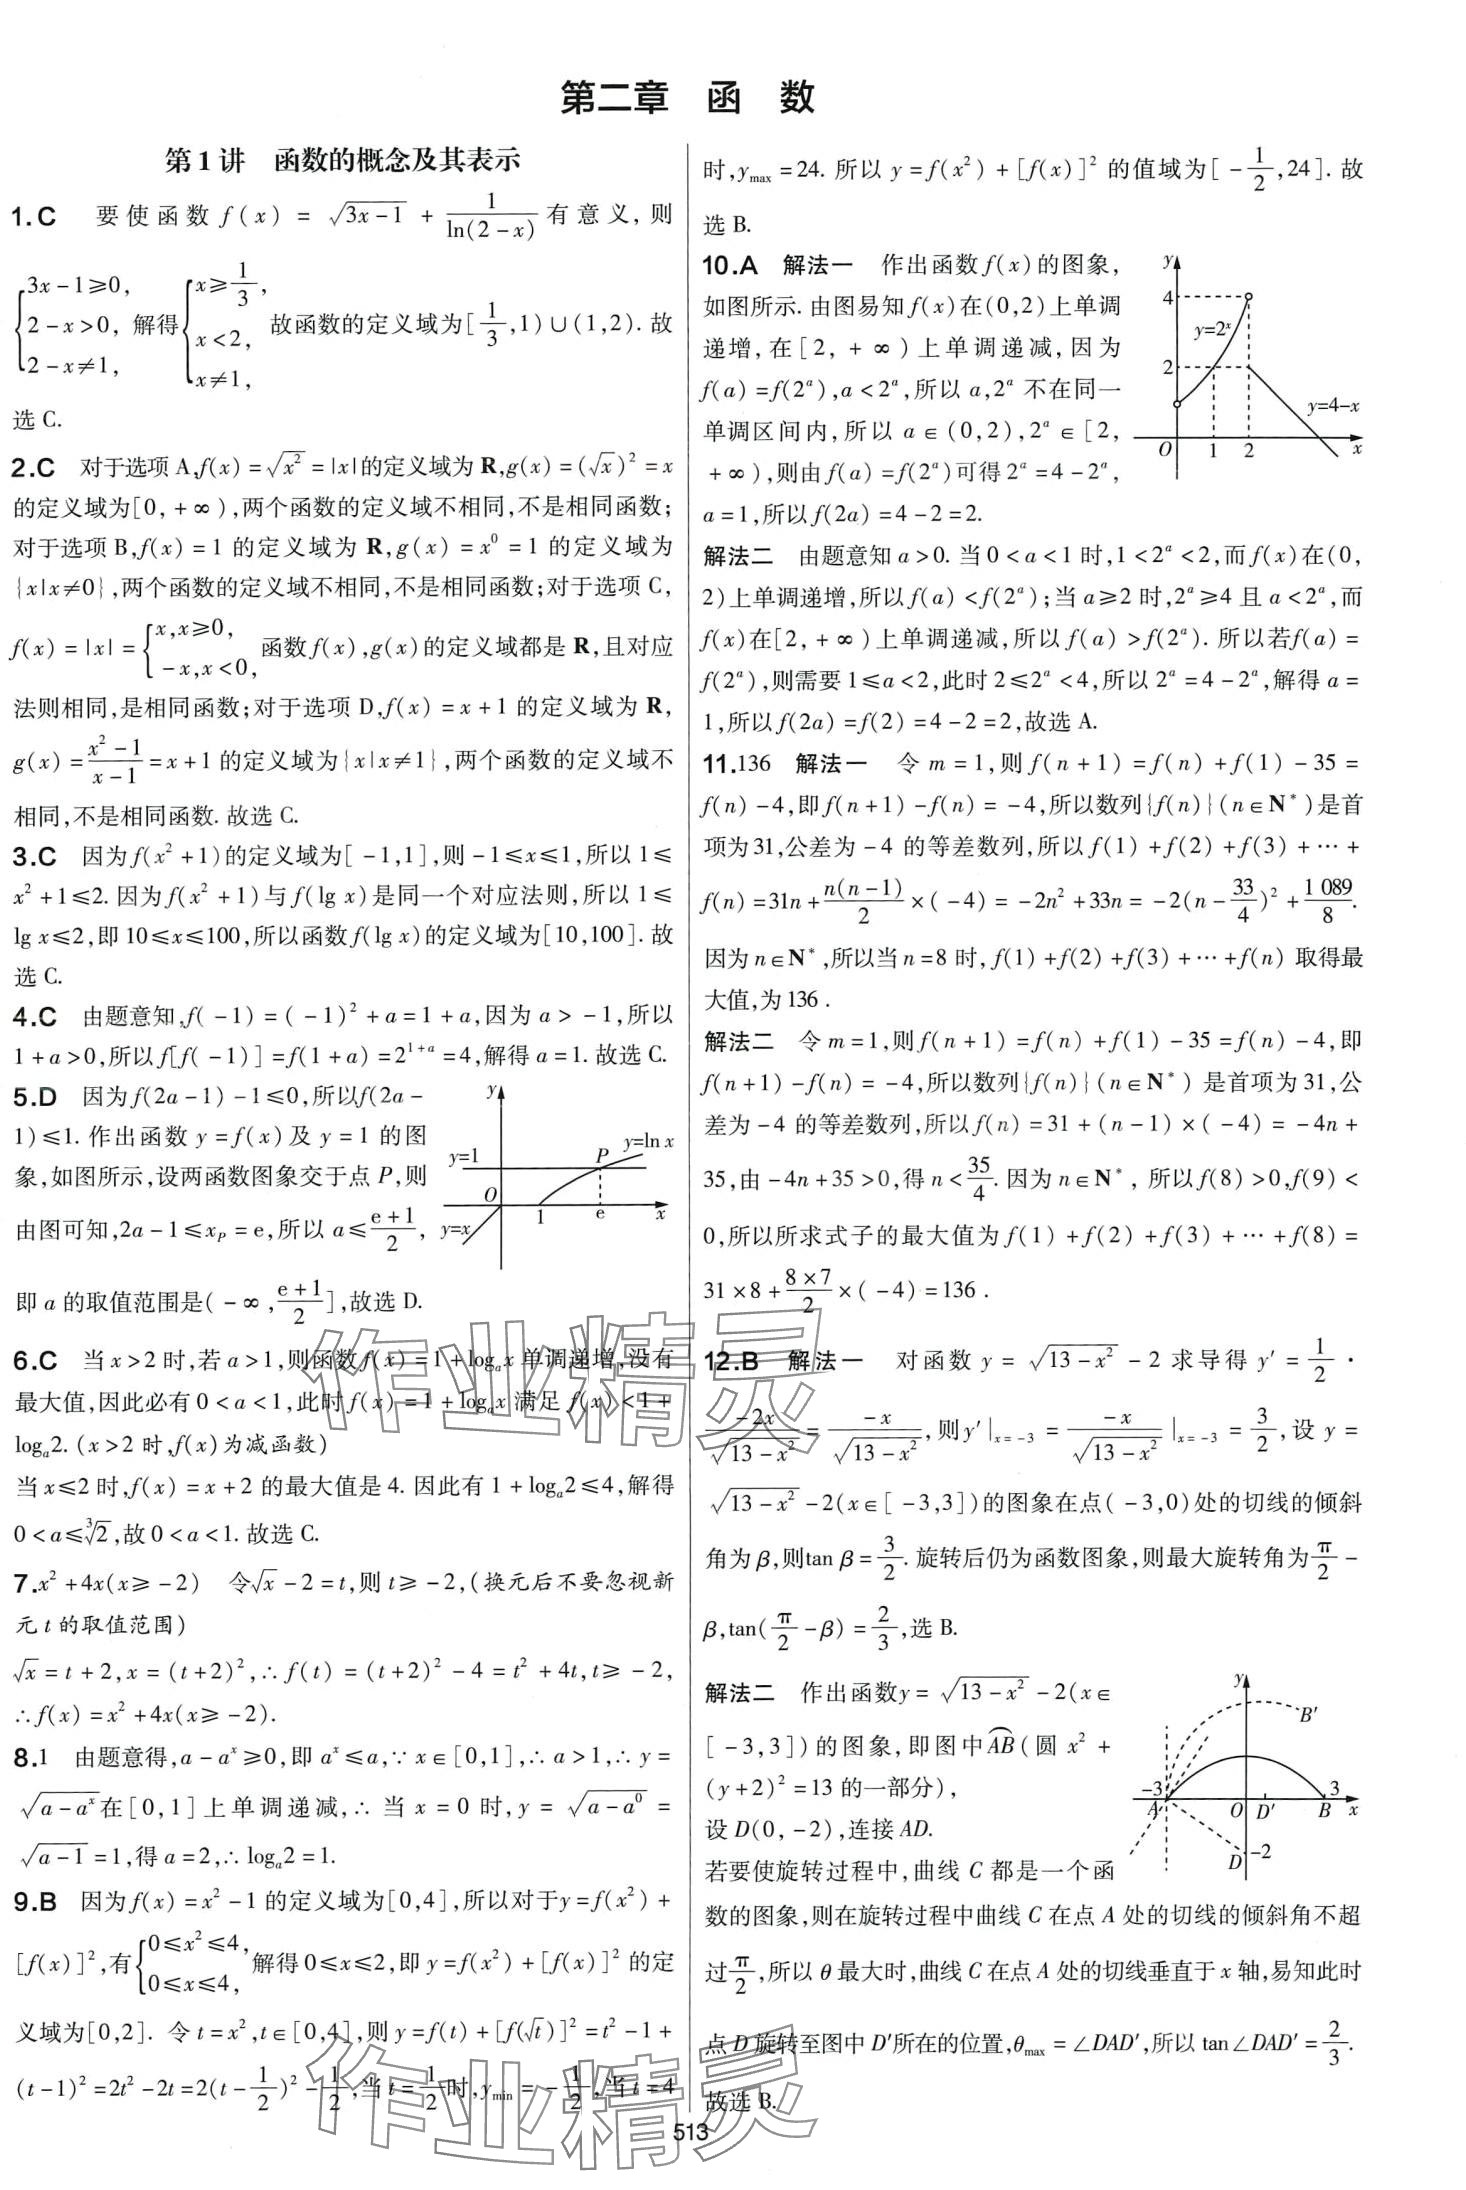 第二章　函　数
第1讲　函数的概念及其表示
1.C　要使函数 f(x) = √(3x-1) + 1/ln(2-x) 有意义,则
{3x-1≥0, 2-x>0, 2-x≠1, 解得 {x≥1/3, x<2, x≠1, 故函数的定义域为[1/3,1)∪(1,2). 故
选 C.
2.C　对于选项 A,f(x)=√(x²)=|x|的定义域为 R,g(x)=(√x)²=x
的定义域为[0,+∞),两个函数的定义域不相同,不是相同函数;
对于选项 B,f(x)=1 的定义域为 R,g(x)=x⁰=1 的定义域为
{x|x≠0},两个函数的定义域不相同,不是相同函数;对于选项 C,
f(x)=|x|={x,x≥0, -x,x<0, 函数f(x),g(x)的定义域都是 R,且对应
法则相同,是相同函数;对于选项 D,f(x)=x+1 的定义域为 R,
g(x)=(x²-1)/(x-1)=x+1 的定义域为{x|x≠1},两个函数的定义域不
相同,不是相同函数. 故选 C.
3.C　因为f(x²+1)的定义域为[-1,1],则-1≤x≤1,所以 1≤
x²+1≤2. 因为f(x²+1)与f(lg x)是同一个对应法则,所以 1≤
lg x≤2,即 10≤x≤100,所以函数f(lg x)的定义域为[10,100]. 故
选 C.
4.C　由题意知,f(-1)=(-1)²+a=1+a,因为 a>-1,所以
1+a>0,所以f[f(-1)]=f(1+a)=2^(1+a)=4,解得 a=1. 故选 C.
5.D　因为f(2a-1)-1≤0,所以f(2a-
1)≤1. 作出函数 y=f(x)及 y=1 的图
象,如图所示,设两函数图象交于点 P,则
由图可知,2a-1≤x_P=e,所以 a≤(e+1)/2,
y
y=1
P
y=ln x
O
1
e
x
y=x
即 a 的取值范围是(-∞,(e+1)/2],故选 D.
6.C　当 x>2 时,若 a>1,则函数f(x)=1+logₐx 单调递增,没有
最大值,因此必有 0<a<1,此时f(x)=1+logₐx 满足 f(x)<1+
logₐ2. (x>2 时,f(x)为减函数)
当 x≤2 时,f(x)=x+2 的最大值是 4. 因此有 1+logₐ2≤4,解得
0<a≤³√2,故 0<a<1. 故选 C.
7.x²+4x(x≥-2)　令√x-2=t,则 t≥-2,(换元后不要忽视新
元 t 的取值范围)
√x=t+2,x=(t+2)²,∴f(t)=(t+2)²-4=t²+4t,t≥-2,
∴f(x)=x²+4x(x≥-2).
8.1　由题意得,a-aˣ≥0,即 aˣ≤a,∵x∈[0,1],∴a>1,∴y=
√(a-aˣ)在[0,1]上单调递减,∴当 x=0 时,y=√(a-a⁰)=
√(a-1)=1,得 a=2,∴logₐ2=1.
9.B　因为f(x)=x²-1 的定义域为[0,4],所以对于y=f(x²)+
[f(x)]²,有{0≤x²≤4, 0≤x≤4, 解得0≤x≤2,即 y=f(x²)+[f(x)]² 的定
义域为[0,2]. 令 t=x²,t∈[0,4],则 y=f(t)+[f(√t)]²=t²-1+
(t-1)²=2t²-2t=2(t-1/2)²-1/2,当 t=1/2时,y_min=-1/2,当 t=4
时,y_max=24. 所以 y=f(x²)+[f(x)]² 的值域为[-1/2,24]. 故
选 B.
10.A　解法一　作出函数f(x)的图象,
如图所示. 由图易知f(x)在(0,2)上单调
递增,在[2,+∞)上单调递减,因为
f(a)=f(2ᵃ),a<2ᵃ,所以 a,2ᵃ 不在同一
单调区间内,所以 a∈(0,2),2ᵃ∈[2,
+∞),则由f(a)=f(2ᵃ)可得 2ᵃ=4-2ᵃ,
a=1,所以f(2a)=4-2=2.
y
4
y=2ˣ
2
y=4-x
O
1
2
x
解法二　由题意知 a>0. 当 0<a<1 时,1<2ᵃ<2,而f(x)在(0,
2)上单调递增,所以f(a)<f(2ᵃ);当 a≥2 时,2ᵃ≥4 且 a<2ᵃ,而
f(x)在[2,+∞)上单调递减,所以f(a)>f(2ᵃ). 所以若f(a)=
f(2ᵃ),则需要 1≤a<2,此时 2≤2ᵃ<4,所以 2ᵃ=4-2ᵃ,解得 a=
1,所以f(2a)=f(2)=4-2=2,故选 A.
11.136　解法一　令 m=1,则f(n+1)=f(n)+f(1)-35=
f(n)-4,即f(n+1)-f(n)=-4,所以数列{f(n)}(n∈N*)是首
项为31,公差为-4 的等差数列,所以f(1)+f(2)+f(3)+⋯+
f(n)=31n+n(n-1)/2×(-4)=-2n²+33n=-2(n-33/4)²+1 089/8.
因为 n∈N*,所以当 n=8 时,f(1)+f(2)+f(3)+⋯+f(n)取得最
大值,为136.
解法二　令 m=1,则f(n+1)=f(n)+f(1)-35=f(n)-4,即
f(n+1)-f(n)=-4,所以数列{f(n)}(n∈N*)是首项为31,公
差为-4 的等差数列,所以f(n)=31+(n-1)×(-4)=-4n+
35,由-4n+35>0,得 n<35/4. 因为 n∈N*,所以f(8)>0,f(9)<
0,所以所求式子的最大值为f(1)+f(2)+f(3)+⋯+f(8)=
31×8+(8×7)/2×(-4)=136.
12.B　解法一　对函数 y=√(13-x²)-2 求导得 y′=1/2·
(-2x)/√(13-x²)=(-x)/√(13-x²),则y′|ₓ₌₋₃=(-x)/√(13-x²)|ₓ₌₋₃=3/2,设 y=
√(13-x²)-2(x∈[-3,3])的图象在点(-3,0)处的切线的倾斜
角为β,则tan β=3/2. 旋转后仍为函数图象,则最大旋转角为π/2-
β,tan(π/2-β)=2/3,选 B.
解法二　作出函数y=√(13-x²)-2(x∈
[-3,3])的图象,即图中⌒AB(圆 x²+
(y+2)²=13 的一部分),
设 D(0,-2),连接 AD.
若要使旋转过程中,曲线 C 都是一个函
y
B′
-3
3
A
O
D′
B
x
D
-2
数的图象,则在旋转过程中曲线 C 在点 A 处的切线的倾斜角不超
过π/2,所以 θ 最大时,曲线 C 在点 A 处的切线垂直于 x 轴,易知此时
点 D 旋转至图中 D′所在的位置,θ_max=∠DAD′,所以 tan∠DAD′=2/3.
故选 B.
作业精灵
作业精灵
513